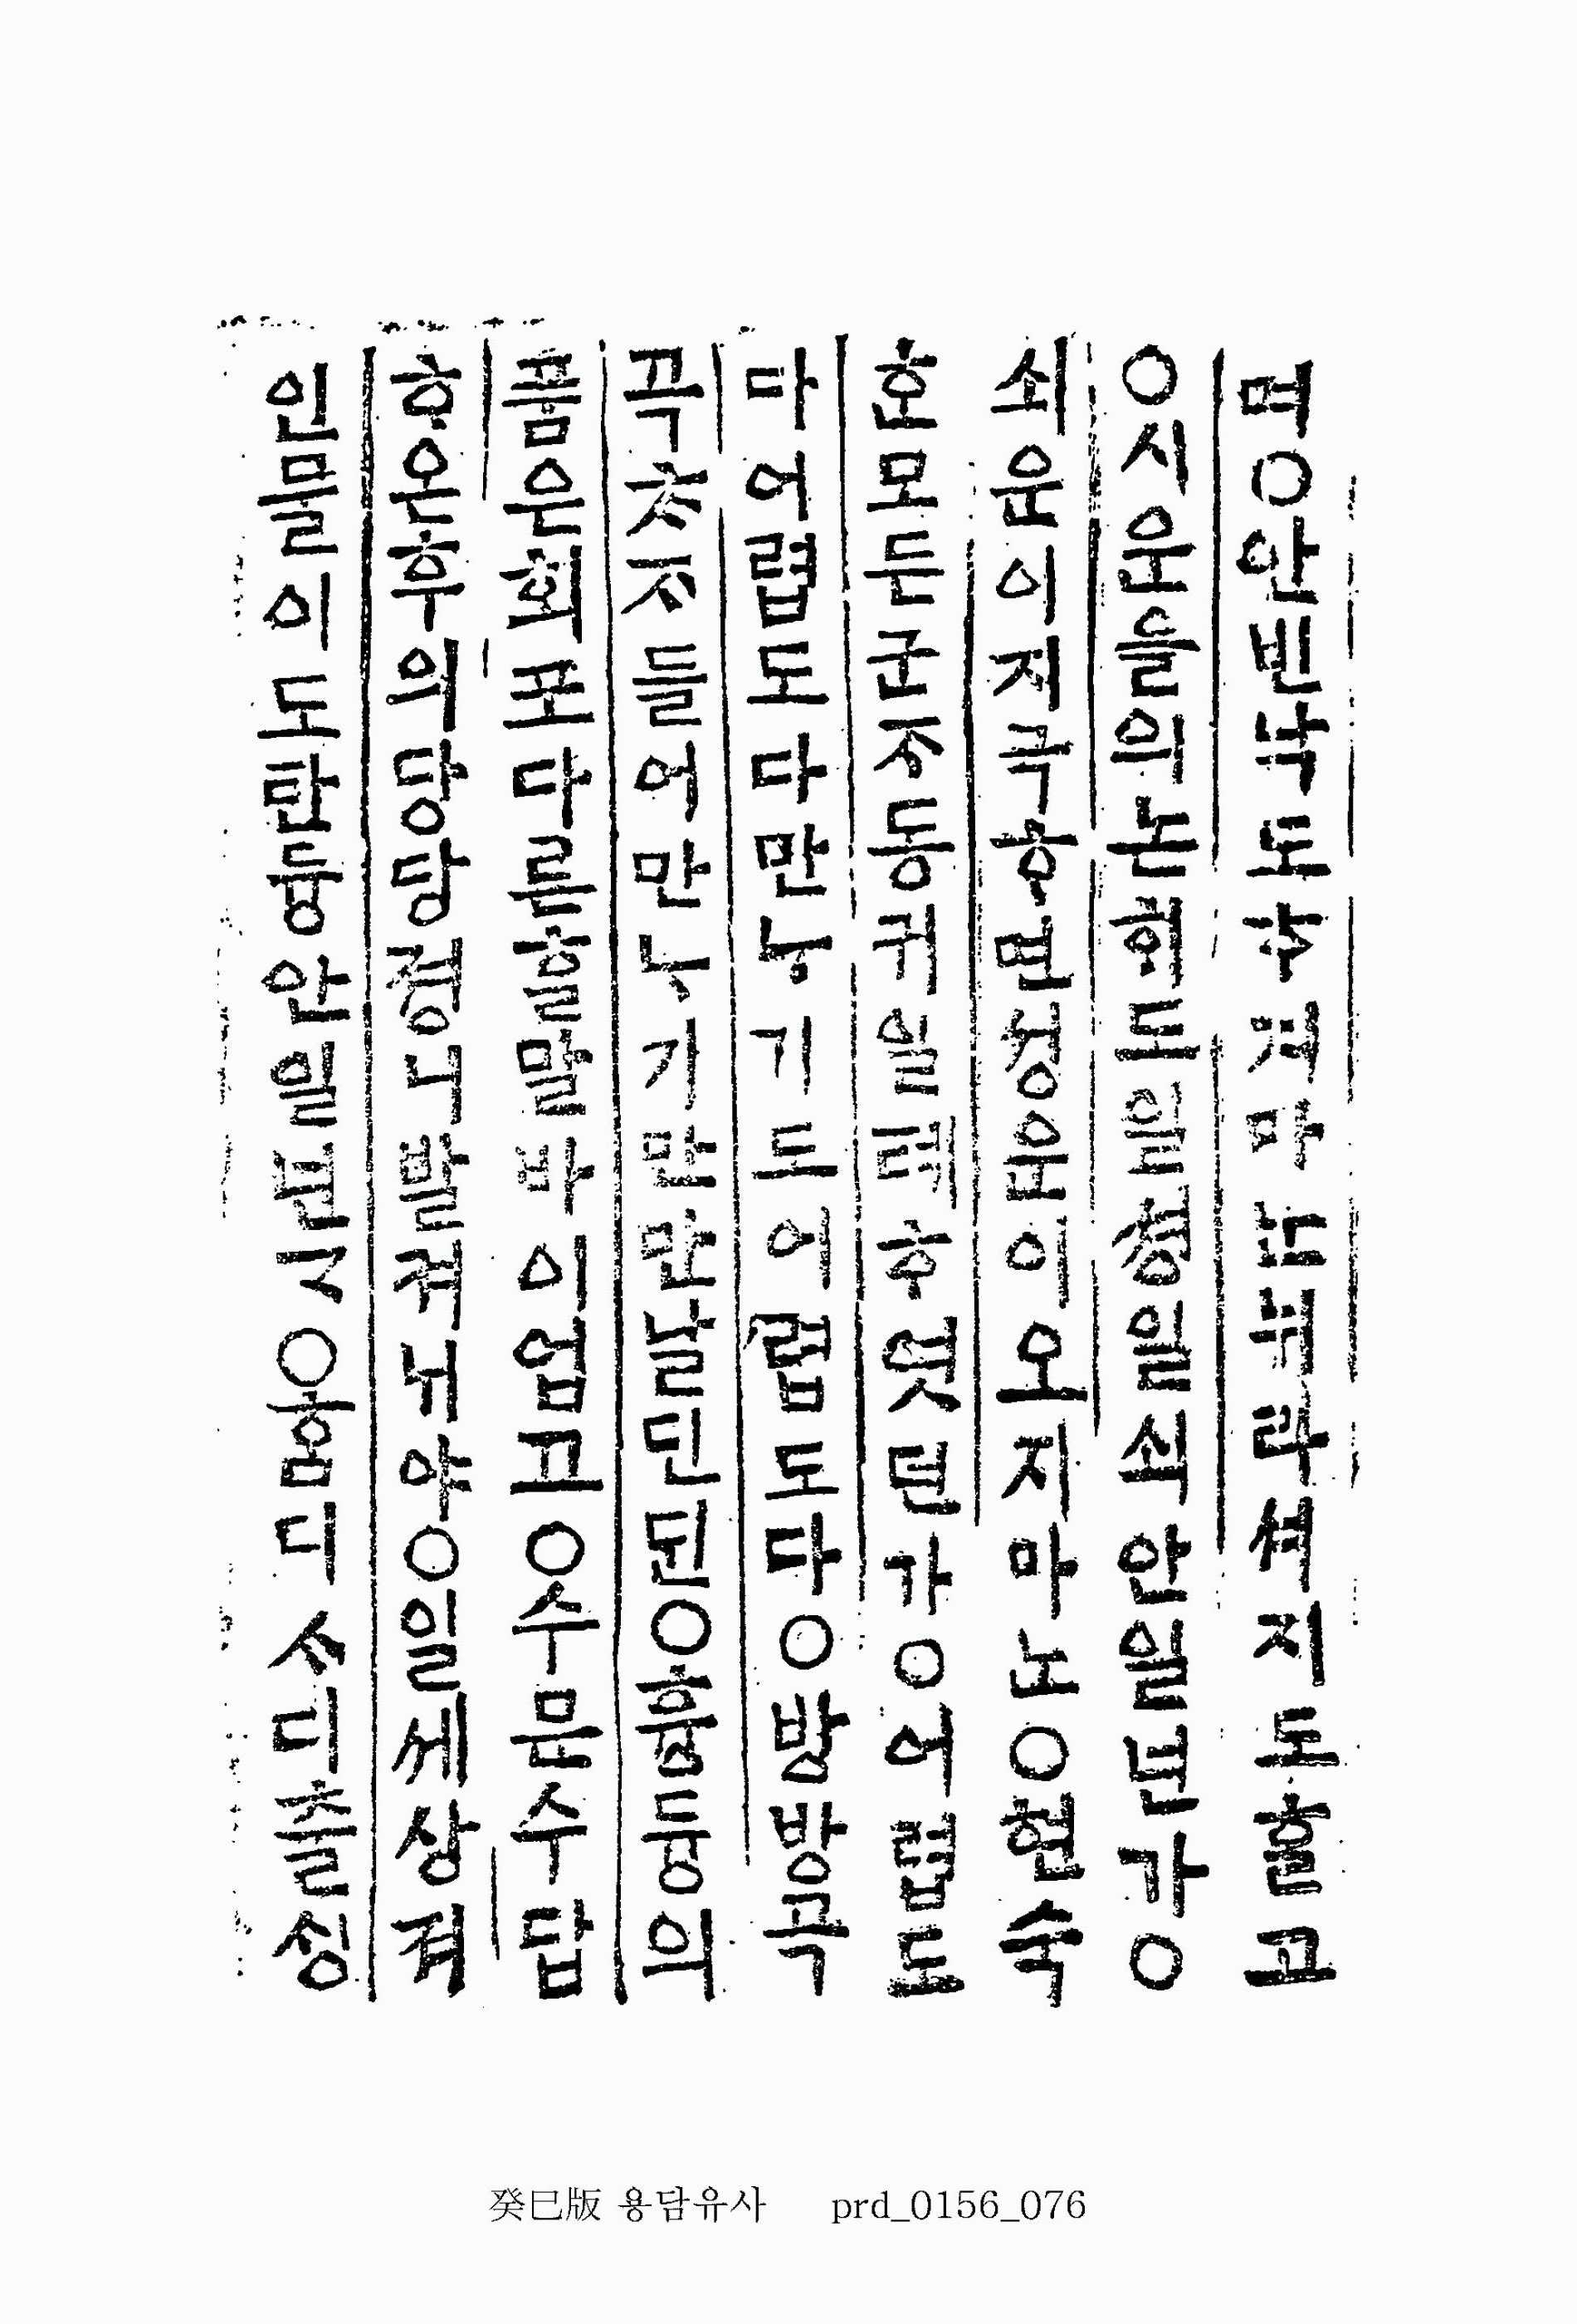 며○안빈낙도ᄒᆞ거마는뉘라셔지도ᄒᆞᆯ고
○시운을의논ᄒᆡ도일셩일쇠안일년가○
쇠운이지극ᄒᆞ면셩운이오지마노○현숙
ᄒᆞᆫ모든군ᄌᆞ동귀일톄ᄒᆞ엿던가○어렵도
다어렵도다만ᄂᆞ기도어렵도다○방방곡
끅ᄎᆞᄌᆞ들어만ᄂᆞ기만만날딘된○흉듕의
품은회포다른ᄒᆞᆯ말바이업고○수문수답
ᄒᆞ온후의당당졍니발켜ᄂᆡ야○일셰상져
인물이도탄듕안일년ᄀᆞ○홈디ᄉᆞ디츌싱
癸巳版 용담유사 prd_0156_076